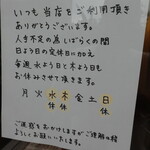 いつも当店をご利用頂き
ありがとうございます。
人手不足の為しばらくの間
日よう日の定休日に加え
毎週水よう日と木よう日も
お休みさせて頂きます。
月火水木金土日
休休休
ご迷惑をおかけしますがご理解の程
よろしくお願いいたします。